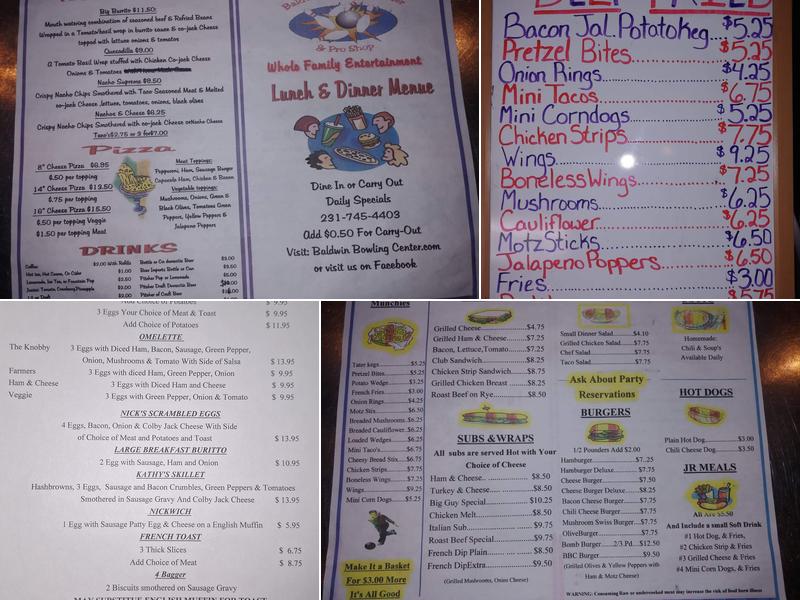 Big Burrito $11.50:
Mouth watering combination of seasoned beef & Refried Beans
Wrapped in a Tomato/basil wrap in burrito sauce & co-jack Cheese
topped with lettuce onions & tomatoes
Quesadilla $9.00
A Tomato Basil Wrap stuffed with Chicken Co-jack Cheese
Onions & Tomatoes
Nacho Supreme $8.50
Crispy Nacho Chips Smothered with Taco Seasoned Meat & Melted
co-jack Cheese, lettuce, tomatoes, onions, black olives
Nachos & Cheese $6.25
Crispy Nacho Chips Smothered with co-jack Cheese or Nacho Cheese
Taco's $2.75 or 3 for $7.00
Pizza
8" Cheese Pizza $6.95
$.50 per topping
14" Cheese Pizza $13.50
$.75 per topping
16" Cheese Pizza $15.50
$.50 per topping Veggie
$1.50 per topping Meat
Meat Toppings:
Pepperoni, Ham, Sausage Burger
Capacola Ham, Chicken & Bacon
Vegetable toppings:
Mushrooms, Onions, Green &
Black Olives, Tomatoes Green
Peppers, Yellow Peppers &
Jalapeno Peppers
DRINKS
Coffee $2.00 With Refills
Hot tea, Hot Cocoa, Or Cake $1.00
Lemonade, Ice Tea, or Fountain Pop $2.50
Juices: Tomato, Cranberry, Pineapple $2.00
Bottle or Can domestic Beer $3.00
Beer Imports Bottle or Can $3.50
Pitcher Pop or Lemonade $5.00
Pitcher Draft Domestic Beer
Pitcher of Craft Beer
& Pro Shop
Whole Family Entertainment
Lunch & Dinner Menue
Dine In or Carry Out
Daily Specials
231-745-4403
Add $0.50 For Carry-Out
Visit: Baldwin Bowling Center.com
or visit us on Facebook
DEEP FRIED
Bacon Jal. Potato Keg...$5.25
Pretzel Bites...$5.25
Onion Rings...$4.25
Mini Tacos...$6.75
Mini Corndogs...$5.25
Chicken Strips...$7.75
Wings...$9.25
Boneless Wings...$7.25
Mushrooms...$6.25
Cauliflower...$6.25
Motz Sticks...$6.50
Jalapeno Poppers...$6.50
Fries...$3.00
$5.75
Add Choice of Potatoes $ 9.95
3 Eggs Your Choice of Meat & Toast $ 9.95
Add Choice of Potatoes $ 11.95
OMELETTE
The Knobby 3 Eggs with Diced Ham, Bacon, Sausage, Green Pepper,
Onion, Mushrooms & Tomato With Side of Salsa $ 13.95
Farmers 3 Eggs with diced Ham, Green Pepper, Onion $ 9.95
Ham & Cheese 3 Eggs with Diced Ham and Cheese $ 9.95
Veggie 3 Eggs with Green Pepper, Onion & Tomato $ 9.95
NICK'S SCRAMBLED EGGS
4 Eggs, Bacon, Onion & Colby Jack Cheese With Side
of Choice of Meat and Potatoes and Toast $ 13.95
LARGE BREAKFAST BURITTO
2 Egg with Sausage, Ham and Onion $ 10.95
KATHY'S SKILLET
Hashbrowns, 3 Eggs, Sausage and Bacon Crumbles, Green Peppers & Tomatoes
Smothered in Sausage Gravy And Colby Jack Cheese $ 13.95
NICKWICH
1 Egg with Sausage Patty Egg & Cheese on a English Muffin $ 5.95
FRENCH TOAST
3 Thick Slices $ 6.75
Add Choice of Meat $ 8.75
4 Bagger
2 Biscuits smothered on Sausage Gravy
MAY SUBSTITUE ENGLISH MUFFIN FOR TOAST
Munchies
Tater kegs...$5.25
Pretzel Bites...$5.25
Potato Wedge...$3.25
French Fries...$3.00
Onion Rings...$4.25
Motz Stix...$6.50
Breaded Mushrooms..$6.25
Breaded Cauliflower.$6.25
Loaded Wedges...$6.25
Mini Taco's...$6.75
Cheesy Bread Stix...$6.75
Chicken Strips...$7.75
Boneless Wings...$7.25
Wings...$9.25
Mini Corn Dogs...$5.25
Make It a Basket
For $3.00 More
It's All Good
Grilled Cheese...$4.75
Grilled Ham & Cheese...$7.25
Bacon, Lettuce, Tomato...$7.25
Club Sandwich...$8.25
Chicken Strip Sandwich...$8.75
Grilled Chicken Breast...$8.25
Roast Beef on Rye...$8.50
SUBS & WRAPS
All subs are served Hot with Your
Choice of Cheese
Ham & Cheese...$8.50
Turkey & Cheese...$8.50
Big Guy Special...$10.25
Chicken Melt...$8.50
Italian Sub...$9.75
Roast Beef Special...$9.75
French Dip Plain...$8.50
French Dip Extra...$9.50
(Grilled Mushrooms, Onions Cheese)
Small Dinner Salad...$4.10
Grilled Chicken Salad...$7.75
Chef Salad...$7.75
Taco Salad...$7.75
Ask About Party
Reservations
BURGERS
1/2 Pounders Add $2.00
Hamburger...$7..25
Hamburger Deluxe...$7.75
Cheese Burger...$7.50
Cheese Burger Deluxe...$8.25
Bacon Cheese Burger...$7.75
Chili Cheese Burger...$7.75
Mushroom Swiss Burger...$7.75
OliveBurger...$7.75
Bomb Burger...2/3 Pd...$12.50
BBC Burger...$9.50
(Grilled Olives & Yellow Peppers with
Ham & Motz Cheese)
Homemade:
Chili & Soup's
Available Daily
HOT DOGS
Plain Hot Dog...$3.00
Chili Cheese Dog...$3.50
JR MEALS
All Are $5.50
And Include a small Soft Drink
#1 Hot Dog, & Fries,
#2 Chicken Strip & Fries
#3 Grilled Cheese & Fries
#4 Mini Corn Dogs, & Fries
WARNING: Consuming Raw or undercooked meat may increase the risk of food born illness